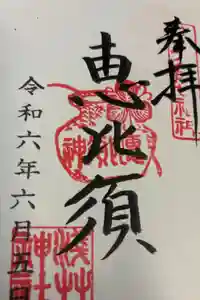 奉拝
恵比須
令和六年六月五日
浅草神社